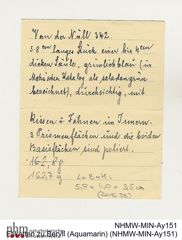 Von der Nüll 342.
5.8 cm langes Stück einer bis 4 cm
dicken Säule, grünlichblau (in
Mohs'schen Katalog als seladongrün
bezeichnet), durchsichtig, mit
Rissen u. Fahnen im Innern.
3 Prismenflächen und die beiden
Basisflächen sind poliert.
162,8 g
162,7 g L x B x H:
5,8 x 4,0 x 3,5 cm
nhm
zu Beryll (Aquamarin) (NHMW-MIN-Ay151)
NHMW-MIN-Ay151